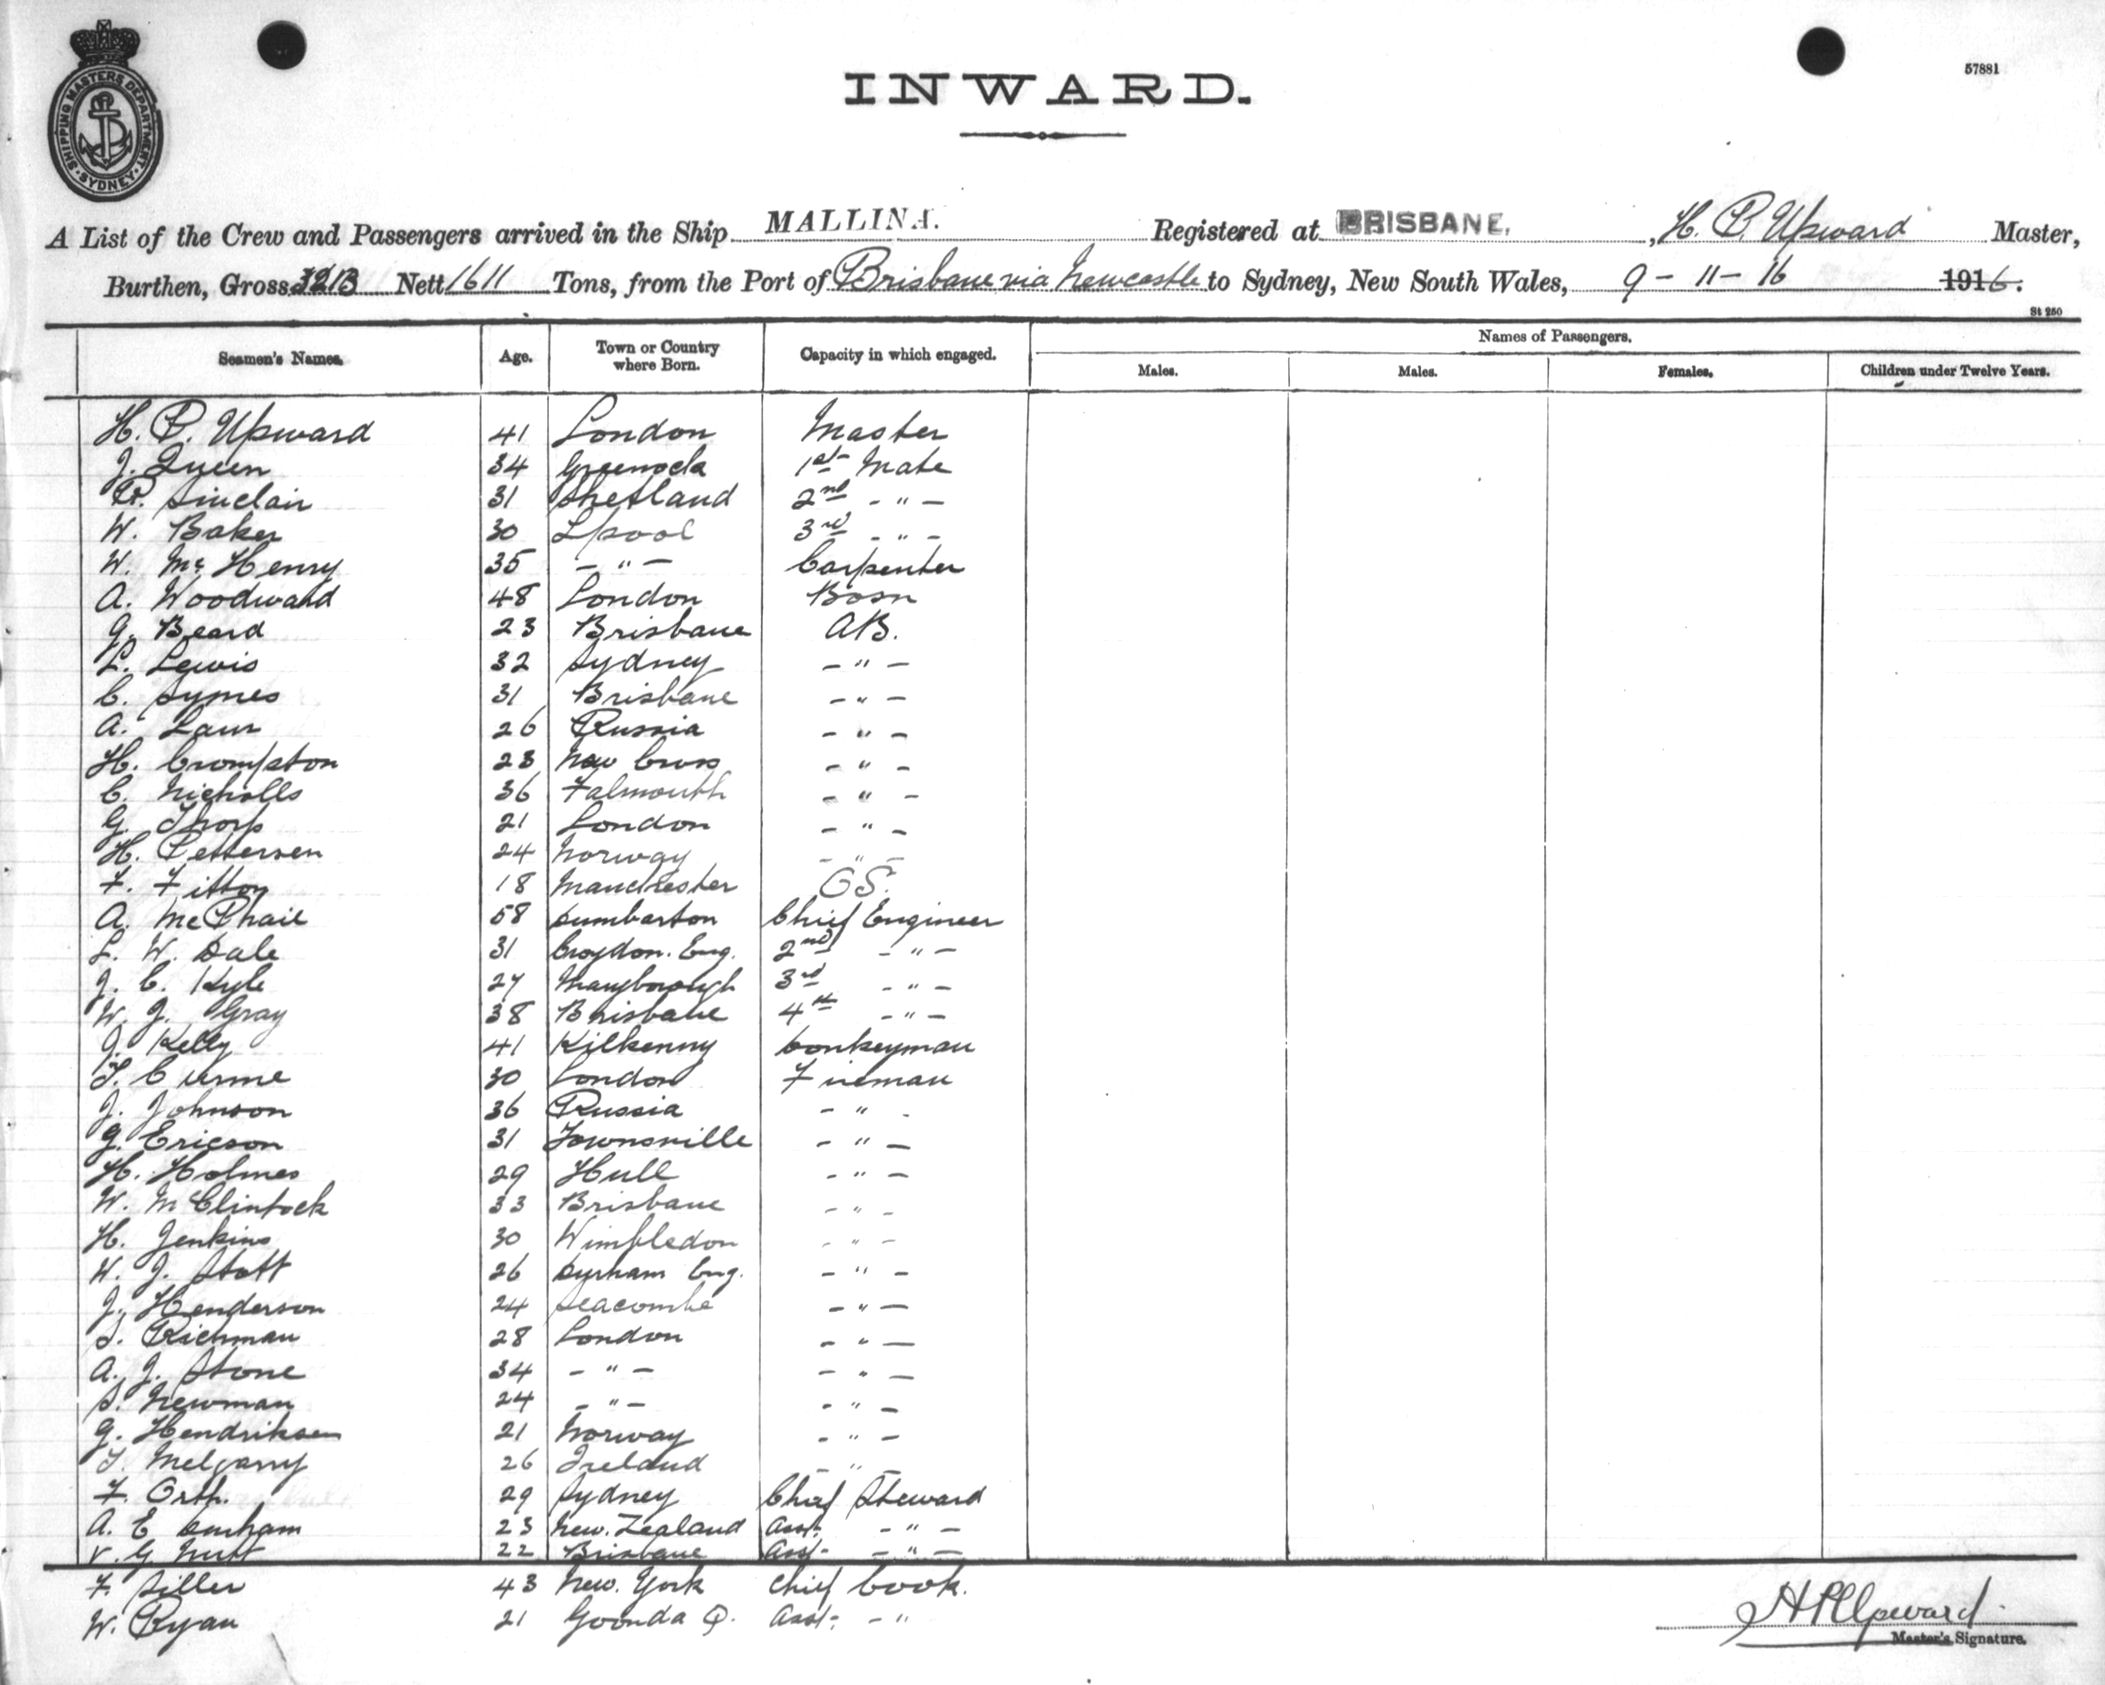 SHIPPING MASTERS DEPARTMENT
SYDNEY
57881
INWARD.
A List of the Crew and Passengers arrived in the Ship MALLINA. Registered at BRISBANE, H. P. Upward Master,
Burthen, Gross 3213 Nett 1611 Tons, from the Port of Brisbane via Newcastle to Sydney, New South Wales, 9-11-16 1916.
St 250
Seamen's Names. Age. Town or Country where Born. Capacity in which engaged. Names of Passengers.
Males. Males. Females. Children under Twelve Years.
H. P. Upward 41 London Master
J. Queen 34 Greenock 1st Mate
R. Sinclair 31 Shetland 2nd - " -
W. Baker 30 Lpool 3rd - " -
W. Mc Henry 35 - " - Carpenter
A. Woodward 48 London Bosn
G. Beard 23 Brisbane AB.
L. Lewis 32 Sydney - " -
C. Symes 31 Brisbane - " -
A. Laur 26 Russia - " -
H. Crompton 23 New Cross - " -
C. Nicholls 36 Falmouth - " -
G. Thorp 21 London - " -
H. Pettersen 24 Norway - " -
F. Fitton 18 Manchester OS.
A. McPhail 58 Dumbarton Chief Engineer
L. W. Dale 31 Croydon. Eng. 2nd - " -
J. C. Kyle 27 Maryborough 3rd - " -
W. J. Gray 38 Brisbane 4th - " -
J. Kelly 41 Kilkenny Donkeyman
T. Curme 30 London Fireman
J. Johnson 36 Russia - " -
G. Ericson 31 Townsville - " -
H. Holmes 29 Hull - " -
W. McClintock 33 Brisbane - " -
H. Jenkins 30 Wimbledon - " -
W. J. Stott 26 Durham Eng. - " -
J. Henderson 24 Seacombe - " -
S. Richman 28 London - " -
A. J. Stone 34 - " - - " -
S. Newman 24 - " - - " -
G. Hendriksen 21 Norway - " -
T. McGarry 26 Ireland - " -
F. Orth. 29 Sydney Chief Steward
A. E Durham 23 New. Zealand Asst. - " -
V. G. Nutt 22 Brisbane Asst - " -
F. Siller 43 New. York Chief Cook.
W. Ryan 21 Goonda Q. Asst. - "
H P Upward
Master's Signature.